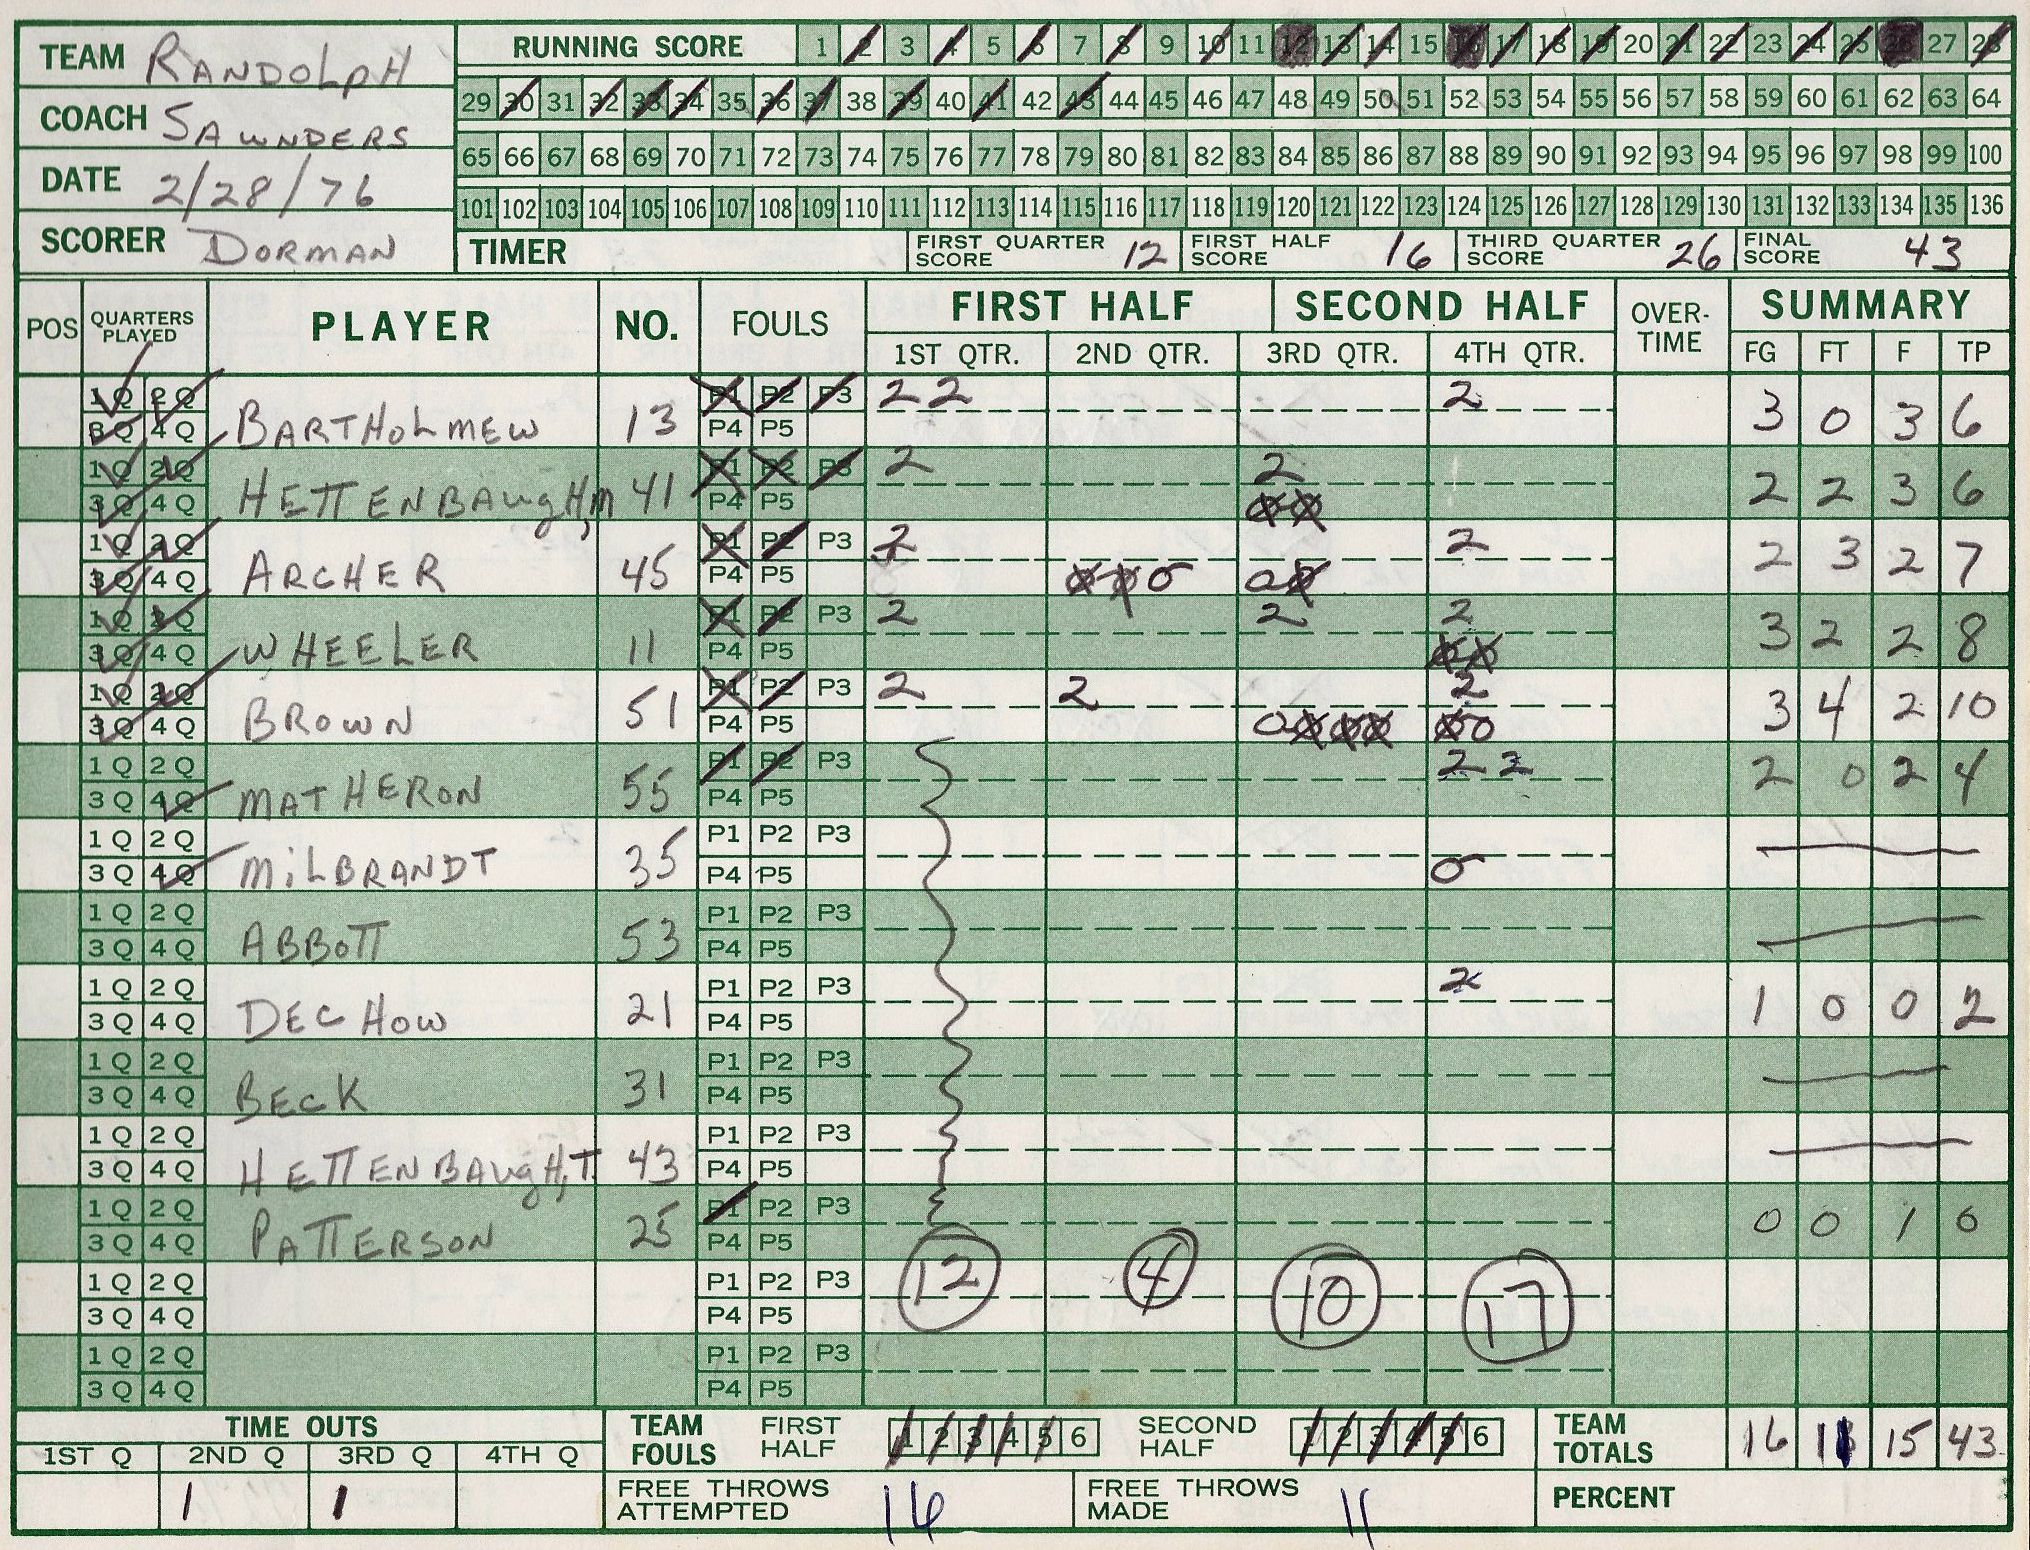 TEAM RANDOLPH
COACH SAWNDERS
DATE 2/28/76
SCORER DORMAN
RUNNING SCORE 1 2 3 4 5 6 7 8 9 10 11 12 13 14 15 16 17 18 19 20 21 22 23 24 25 26 27 28
29 30 31 32 33 34 35 36 37 38 39 40 41 42 43 44 45 46 47 48 49 50 51 52 53 54 55 56 57 58 59 60 61 62 63 64
65 66 67 68 69 70 71 72 73 74 75 76 77 78 79 80 81 82 83 84 85 86 87 88 89 90 91 92 93 94 95 96 97 98 99 100
101 102 103 104 105 106 107 108 109 110 111 112 113 114 115 116 117 118 119 120 121 122 123 124 125 126 127 128 129 130 131 132 133 134 135 136
TIMER FIRST QUARTER SCORE 12 FIRST HALF SCORE 16 THIRD QUARTER SCORE 26 FINAL SCORE 43
POS QUARTERS PLAYED PLAYER NO. FOULS FIRST HALF SECOND HALF OVER-TIME SUMMARY
1ST QTR. 2ND QTR. 3RD QTR. 4TH QTR. FG FT F TP
1Q 2Q P1 P2 P3 2 2 2
3Q 4Q BARTHOLMEW 13 P4 P5 3 0 3 6
1Q 2Q P1 P2 P3 2 2
3Q 4Q HETTENBAUGH,M 41 P4 P5 0 0 2 2 3 6
1Q 2Q P1 P2 P3 2 2
3Q 4Q ARCHER 45 P4 P5 0 0 0 0 0 2 3 2 7
1Q 2Q P1 P2 P3 2 2 2
3Q 4Q WHEELER 11 P4 P5 0 0 3 2 2 8
1Q 2Q P1 P2 P3 2 2 2
3Q 4Q BROWN 51 P4 P5 0 0 0 0 0 0 3 4 2 10
1Q 2Q P1 P2 P3 2 2
3Q 4Q MATHERON 55 P4 P5 2 0 2 4
1Q 2Q P1 P2 P3
3Q 4Q MiLBRANDT 35 P4 P5 0
1Q 2Q P1 P2 P3
3Q 4Q ABBOTT 53 P4 P5
1Q 2Q P1 P2 P3 2
3Q 4Q DECHOW 21 P4 P5 1 0 0 2
1Q 2Q P1 P2 P3
3Q 4Q BECK 31 P4 P5
1Q 2Q P1 P2 P3
3Q 4Q HETTENBAUGH,T. 43 P4 P5
1Q 2Q P1 P2 P3
3Q 4Q PATTERSON 25 P4 P5 0 0 1 0
1Q 2Q P1 P2 P3 12 4 10 17
3Q 4Q P4 P5
1Q 2Q P1 P2 P3
3Q 4Q P4 P5
TIME OUTS TEAM FOULS FIRST HALF 1 2 3 4 5 6 SECOND HALF 1 2 3 4 5 6 TEAM TOTALS 16 11 15 43
1ST Q 2ND Q 3RD Q 4TH Q
1 1 FREE THROWS ATTEMPTED 16 FREE THROWS MADE 11 PERCENT